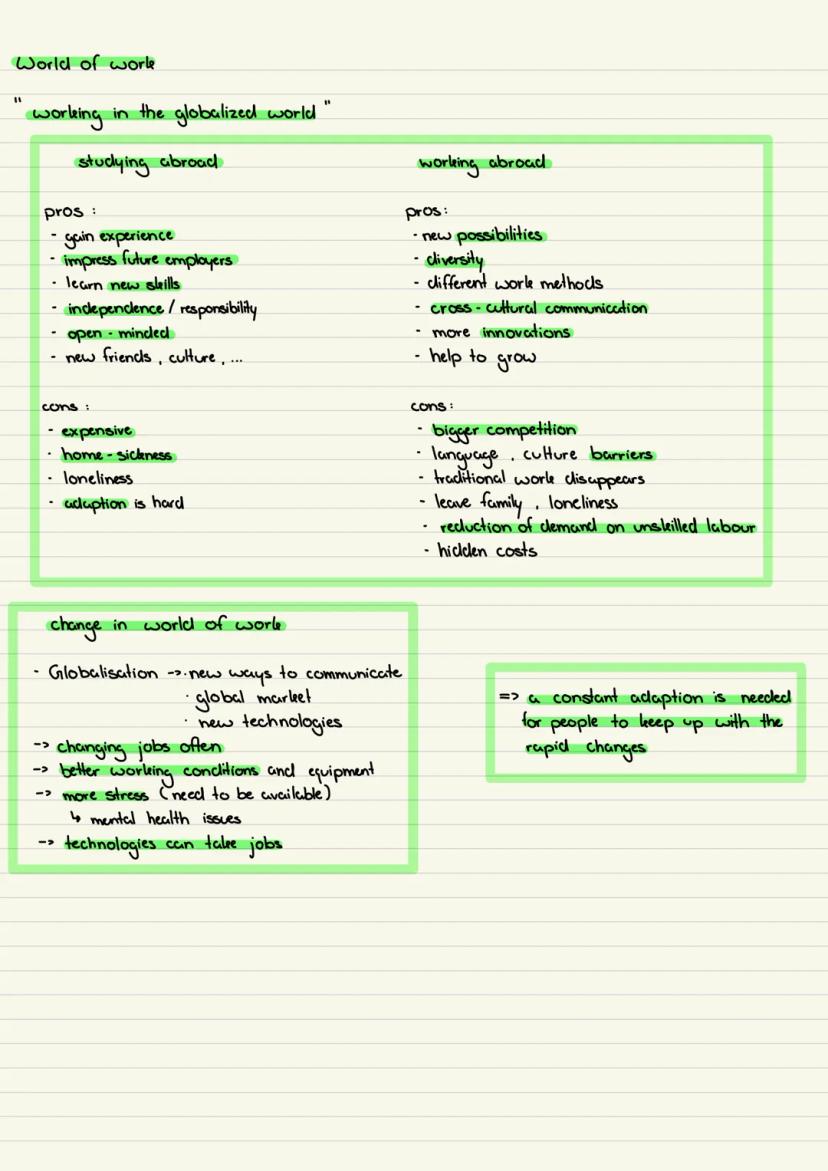 World of work
" working in the globalized world "
studying abroad
pros :
- gain experience
- impress future employers
- learn new skills
- independence / responsibility
- open - minded
- new friends , culture , ...
cons :
- expensive
- home - sickness
- loneliness
- adaption is hard
working abroad
pros :
- new possibilities
- diversity
- different work methods
- cross - cultural communication
- more innovations
- help to grow
cons :
- bigger competition
- language , culture barriers
- traditional work disappears
- leave family , loneliness
- reduction of demand on unskilled labour
- hidden costs
change in world of work
- Globalisation -> · new ways to communicate
· global market
· new technologies
-> changing jobs often
-> better working conditions and equipment
-> more stress (need to be available)
↳ mental health issues
-> technologies can take jobs
=> a constant adaption is needed
for people to keep up with the
rapid changes